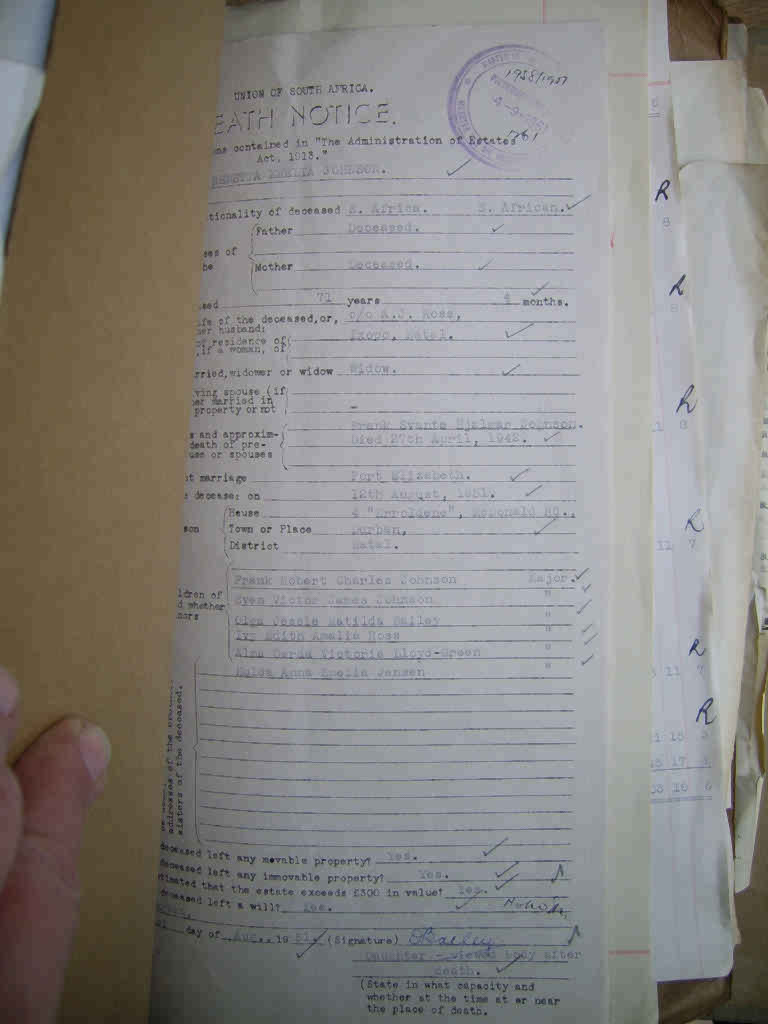 1958/1951
4-9-1951
1761
UNION OF SOUTH AFRICA.
EATH NOTICE.
ons contained in "The Administration of Estates
Act, 1913."
JOHNSON.
tionality of deceased S. Africa. S. African.
Father Deceased.
ses of
he Mother Deceased.
sed 71 years 4 months.
ife of the deceased, or, c/o A.J. Ross,
her husband:
of residence of Ixopo, Natal.
, if a woman, of
rried, widower or widow Widow.
ving spouse (if
er married in
property or not -
Frank Svante Hjalmar Johnson.
s and approxim-
death of pre- Died 27th April, 1942.
use or spouses
t marriage Port Elizabeth.
e decease: on 12th August, 1951.
House 4 "Erroldene", McDonald Rd.,
son Town or Place Durban,
District Natal.
Frank Robert Charles Johnson Major.
ldren of Sven Victor James Johnson "
d whether
nors Olga Jessie Matilda Bailey "
Ivy Edith Amalia Ross "
Alma Gerda Victoria Lloyd-Green "
Hulda Anna Emelia Jensen "
addresses of the
sisters of the deceased.
deceased left any movable property? Yes.
deceased left any immovable property? Yes.
timated that the estate exceeds £300 in value? Yes.
deceased left a will? Yes.
day of Aug., 1951. (Signature) OBailey
Daughter - viewed body after
death.
(State in what capacity and
whether at the time at or near
the place of death.
R
8
R
8
R
8
R
11 7
R
11 7
R